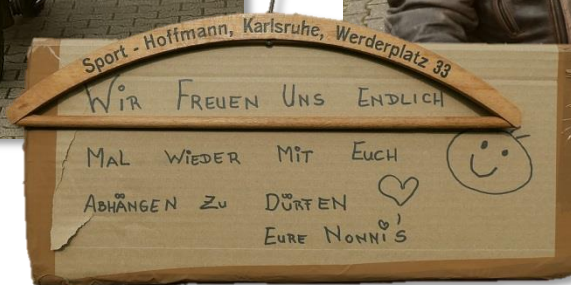 Sport - Hoffmann, Karlsruhe, Werderplatz 33
Wir Freuen Uns Endlich
Mal wieder Mit Euch
Abhängen Zu Dürfen
Eure Nonni's